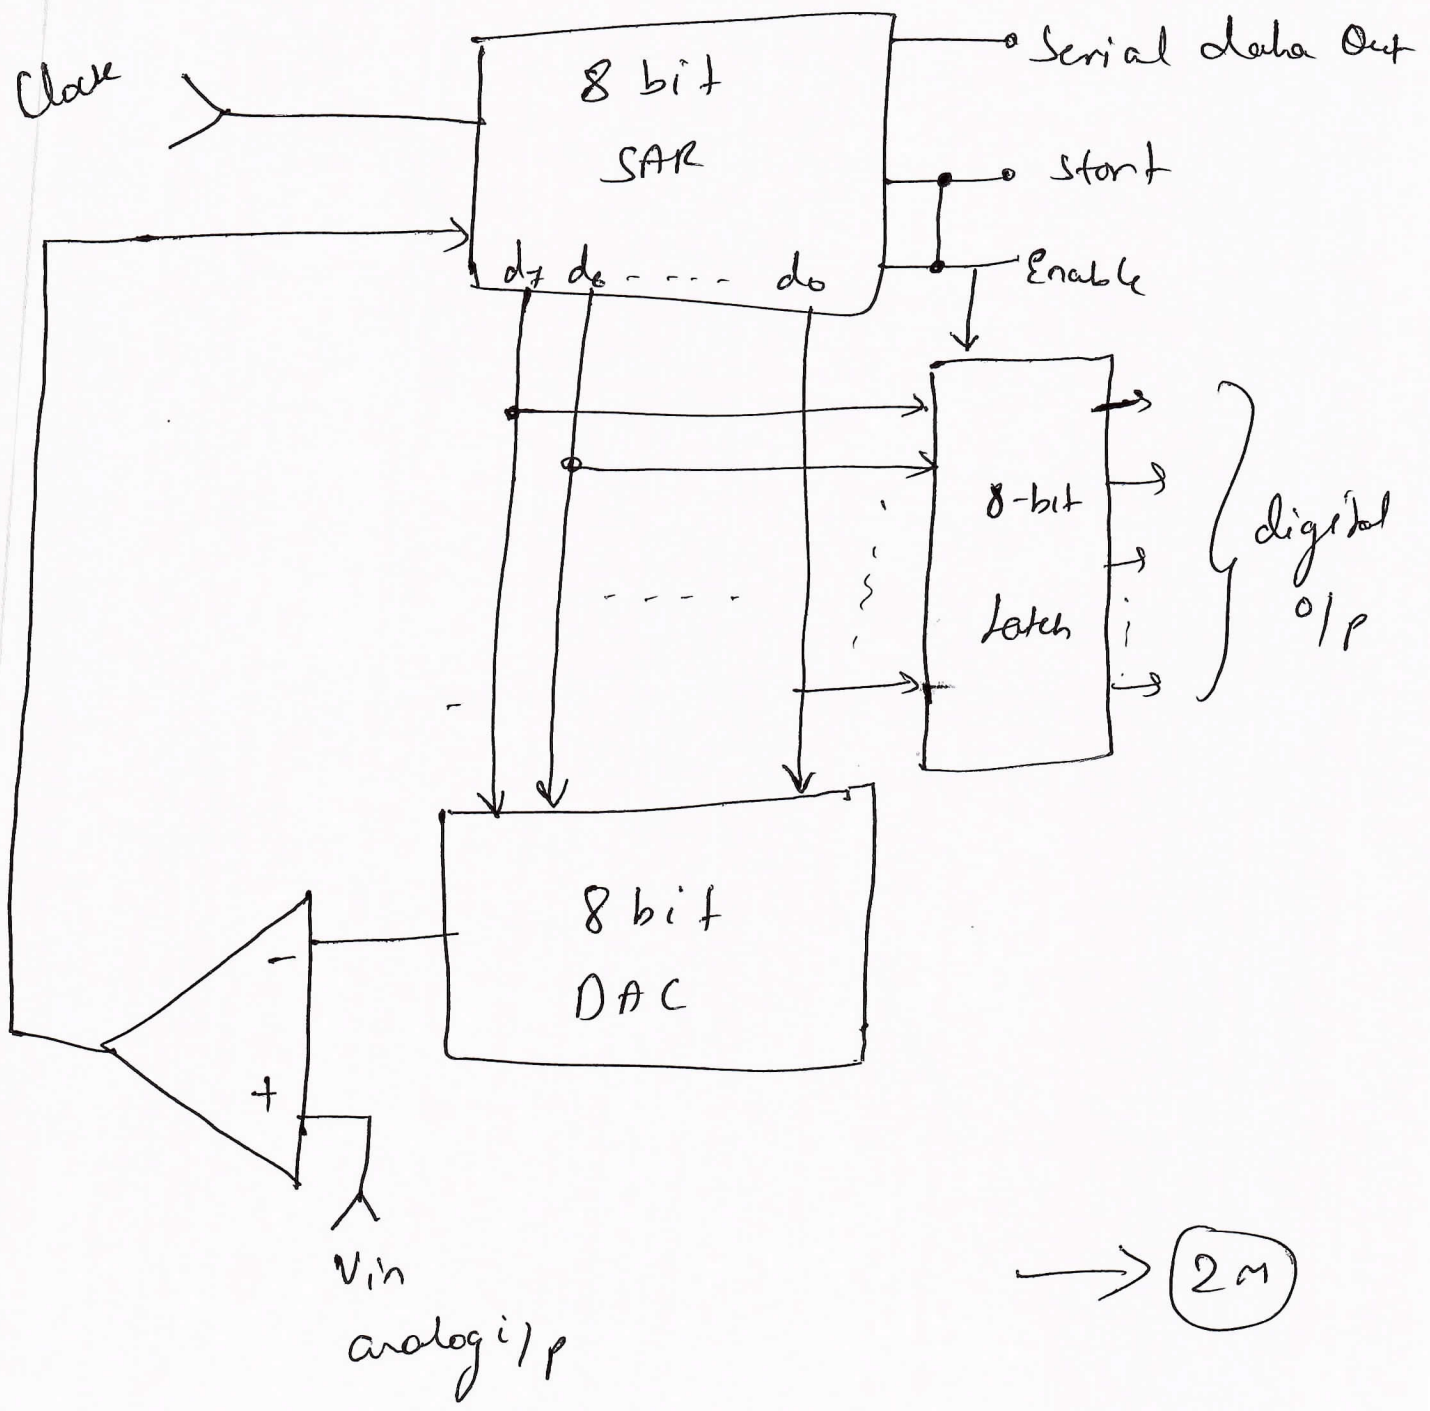 Clock
8 bit
SAR
d7 d6 - - - - - d0
Serial data Out
Start
Enable
8-bit
Latch
digital
o/p
8 bit
DAC
-
+
Vin
analog i/p
2M